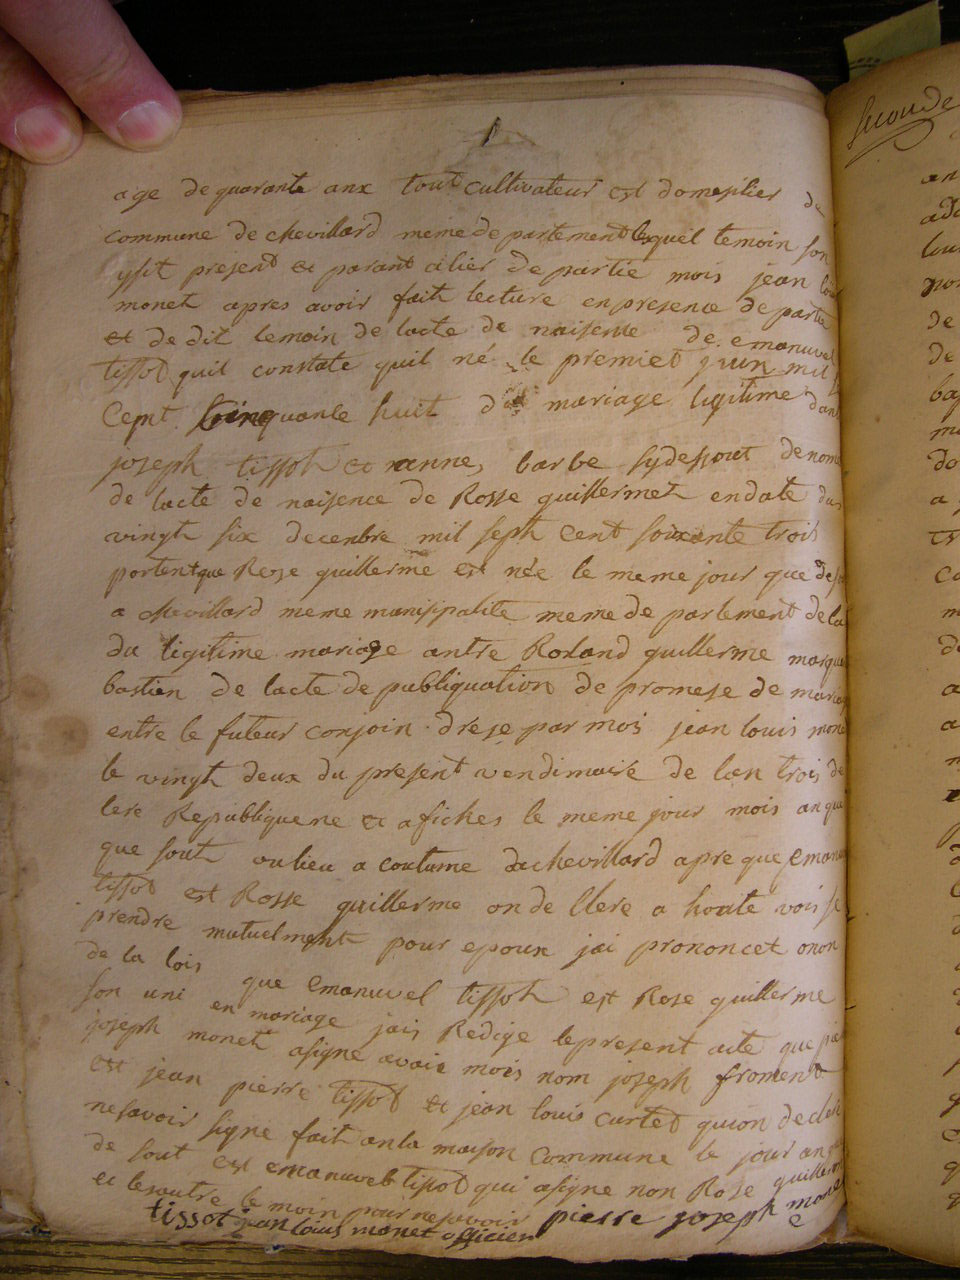 age de quarante anx tout cultivateur est domesilier de
commune de chevillard meme de partement lesquel temoin son
ysit present et parant alier de partie mois jean loui
monet apres avoir fait lecture en presence de partie
et de dit temoin de lacte de naisesse de emanuvel
tissot quil constate quil né le premier juin mil
cept cinquante huit du mariage ligitime dans
joseph tissot et anne, barbe sydessout denome
de lacte de naisence de Rosse guillermet endate du
vingt six decenbre mil seph cent souxente trois
portentque Rose guillerme est née le meme jour que des
a chevillard meme manisipalite meme de partement de la
du ligitime mariage antre Roland guillerme marque
bastien de lacte de publiquation de promese de maria
entre le futeur conjoin drese par mois jean louis mone
le vingt deux du present vendimaire de lan trois de
lere Republiquene et afiches le meme jour mois an que
que sout oulieu a coutume de chevillard apre que emanu
tissot est Rosse guillerme on de llere a houte vois se
prendre mutuelment pour epoux jai prononcet onon
de la lois que emanuvel tissot est Rose guillerme
son uni en mariage jais Redige le present acte que pa
joseph monet asigne avaie mois nom joseph froment
est jean pierre tissot et jean louis curtet quion declere
nesavoir signe fait anla maison commune le jour an
de sout est emanuvel tissot qui asigne non Rose guillerm
et lesautre te moin pour nesavoir pierre joseph mone
tissot jean louis monet officier e
Seconde